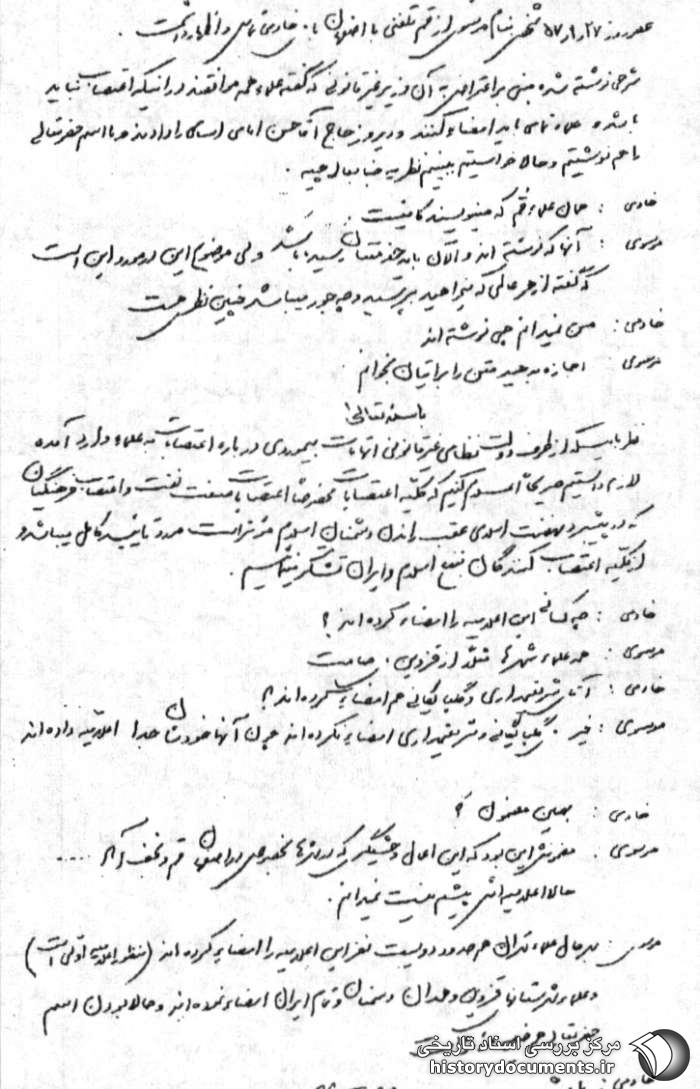 عصر روز ۲۷/۱۰/۵۷ شخصی بنام موسوی از قم تلفنی با اصفهان با خادمی تماس و اظهار داشت
شرحی نوشته شده مبنی بر اعتراض به آن وزیر غیرقانونی که گفته علماء همه موافقند در اینکه اعتصاب نباید
باشد و علماء تمامی باید امضاء کنند و دیروز حاج آقا حسن امامی اسامی را دادند و ما اسم حضرتعالی
را هم نوشتیم و حالا خواستیم ببینیم نظریه جنابعالی چیه .
خادمی : حال علماء قم که مینویسند کافیست
موسوی : آنها که نوشته اند و الان باید خدمتتان رسیده باشد ولی موضوع این در مورد این است
که گفته از هر عالمی که میخواهید بپرسید و چه جور میباشد چنین نظری هست
خادمی : من نمیدانم چی نوشته اند
موسوی : اجازه بدهید متن را براتیان بخوانم
باسمه تعالی
نظر باینکه از طرف دولت نظامی غیرقانونی اتهامات بیموردی درباره اعتصابات به علماء وارد آمده
لازم دانستیم صریحاً اعلام کنیم که کلیه اعتصابات مخصوصاً اعتصابات صنعت نفت و اعتصاب فرهنگیان
که در پیشبرد نهضت اسلامی عقب راندن دشمنان اسلام مؤثر است مورد تایید کامل میباشد و
از کلیه اعتصاب کنندگان بنفع اسلام و ایران تشکر مینمائیم .
خادمی : چه کسانی این اعلامیه را امضاء کرده اند ؟
موسوی : همه علماء شهرها مثلاً از قزوین .
خادمی : آقای شریعتمداری و گلپایگانی هم امضاء کرده اند ؟
موسوی : خیر . گلپایگانی و شریعتمداری امضاء نکرده اند چون آنها خودشان جدا اعلامیه داده اند
خادمی : بهمین مضمون ؟
موسوی : مضمونش این بود که این اعمال وحشیگری که در شهرها بخصوص در اصفهان قم و نجف آباد ....
حالا اعلامیه اش پیشم نیست نمیدانم .
موسوی : بهرحال علماء تهران هم حدود دویست نفر این اعلامیه را امضاء کرده اند (منظور اعلامیه اولی است)
و علماء شهرستانها قزوین و همدان و سمنان و تمام ایران امضاء نموده اند و حالا بودن اسم
حضرتعالی
خادمی :
مرکز بررسی اسناد تاریخی
historydocuments.ir